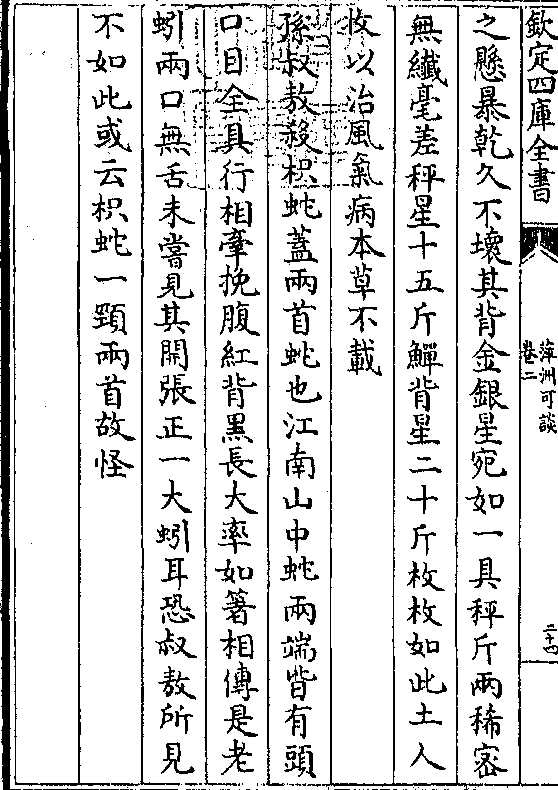 欽定四庫全書
萍洲可談
卷二
二十四
之懸暴乾久不壞其背金銀星宛如一具秤斤兩稀宻
無纎毫差秤星十五斤鱓背星二十斤枚枚如此土人
收以治風氣病本草不載
孫叔敖殺枳蛇蓋兩首蛇也江南山中蛇兩端皆有頭
口目全具行相牽挽腹紅背黒長大率如箸相傳是老
蚓兩口無舌未嘗見其開張正一大蚓耳恐叔敖所見
不如此或云枳蛇一頸兩首故怪